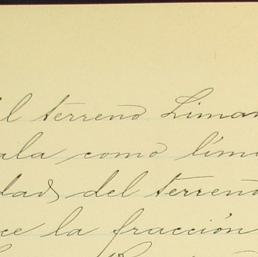 el terreno Liman
ala como lími
dad del terreno
ce la fracción